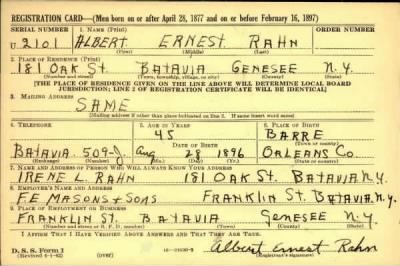 REGISTRATION CARD—(Men born on or after April 28, 1877 and on or before February 16, 1897)
SERIAL NUMBER 1. NAME (Print) ORDER NUMBER
U 2101 ALBERT ERNEST RAHN
(First) (Middle) (Last)
2. PLACE OF RESIDENCE (Print)
181 OAK ST. BATAVIA GENESEE N.Y.
(Number and street) (Town, township, village, or city) (County) (State)
[THE PLACE OF RESIDENCE GIVEN ON THE LINE ABOVE WILL DETERMINE LOCAL BOARD
JURISDICTION; LINE 2 OF REGISTRATION CERTIFICATE WILL BE IDENTICAL]
3. MAILING ADDRESS
SAME
[Mailing address if other than place indicated on line 2. If same insert word same]
4. TELEPHONE 5. AGE IN YEARS 6. PLACE OF BIRTH
45 BARRE
DATE OF BIRTH (Town or county)
BATAVIA 509-J Aug 28 1896 ORLEANS CO.
(Exchange) (Number) (Mo.) (Day) (Yr.) (State or country)
7. NAME AND ADDRESS OF PERSON WHO WILL ALWAYS KNOW YOUR ADDRESS
IRENE L. RAHN 181 OAK ST. BATAVIA N.Y.
8. EMPLOYER'S NAME AND ADDRESS
F.E. MASONS + SONS FRANKLIN ST. BATAVIA, N.Y.
9. PLACE OF EMPLOYMENT OR BUSINESS
FRANKLIN ST. BATAVIA GENESEE N.Y.
(Number and street or R. F. D. number) (Town) (County) (State)
I AFFIRM THAT I HAVE VERIFIED ABOVE ANSWERS AND THAT THEY ARE TRUE.
D. S. S. Form 1
(Revised 4-1-42) (over) Albert Ernest Rahn
(Registrant's signature)